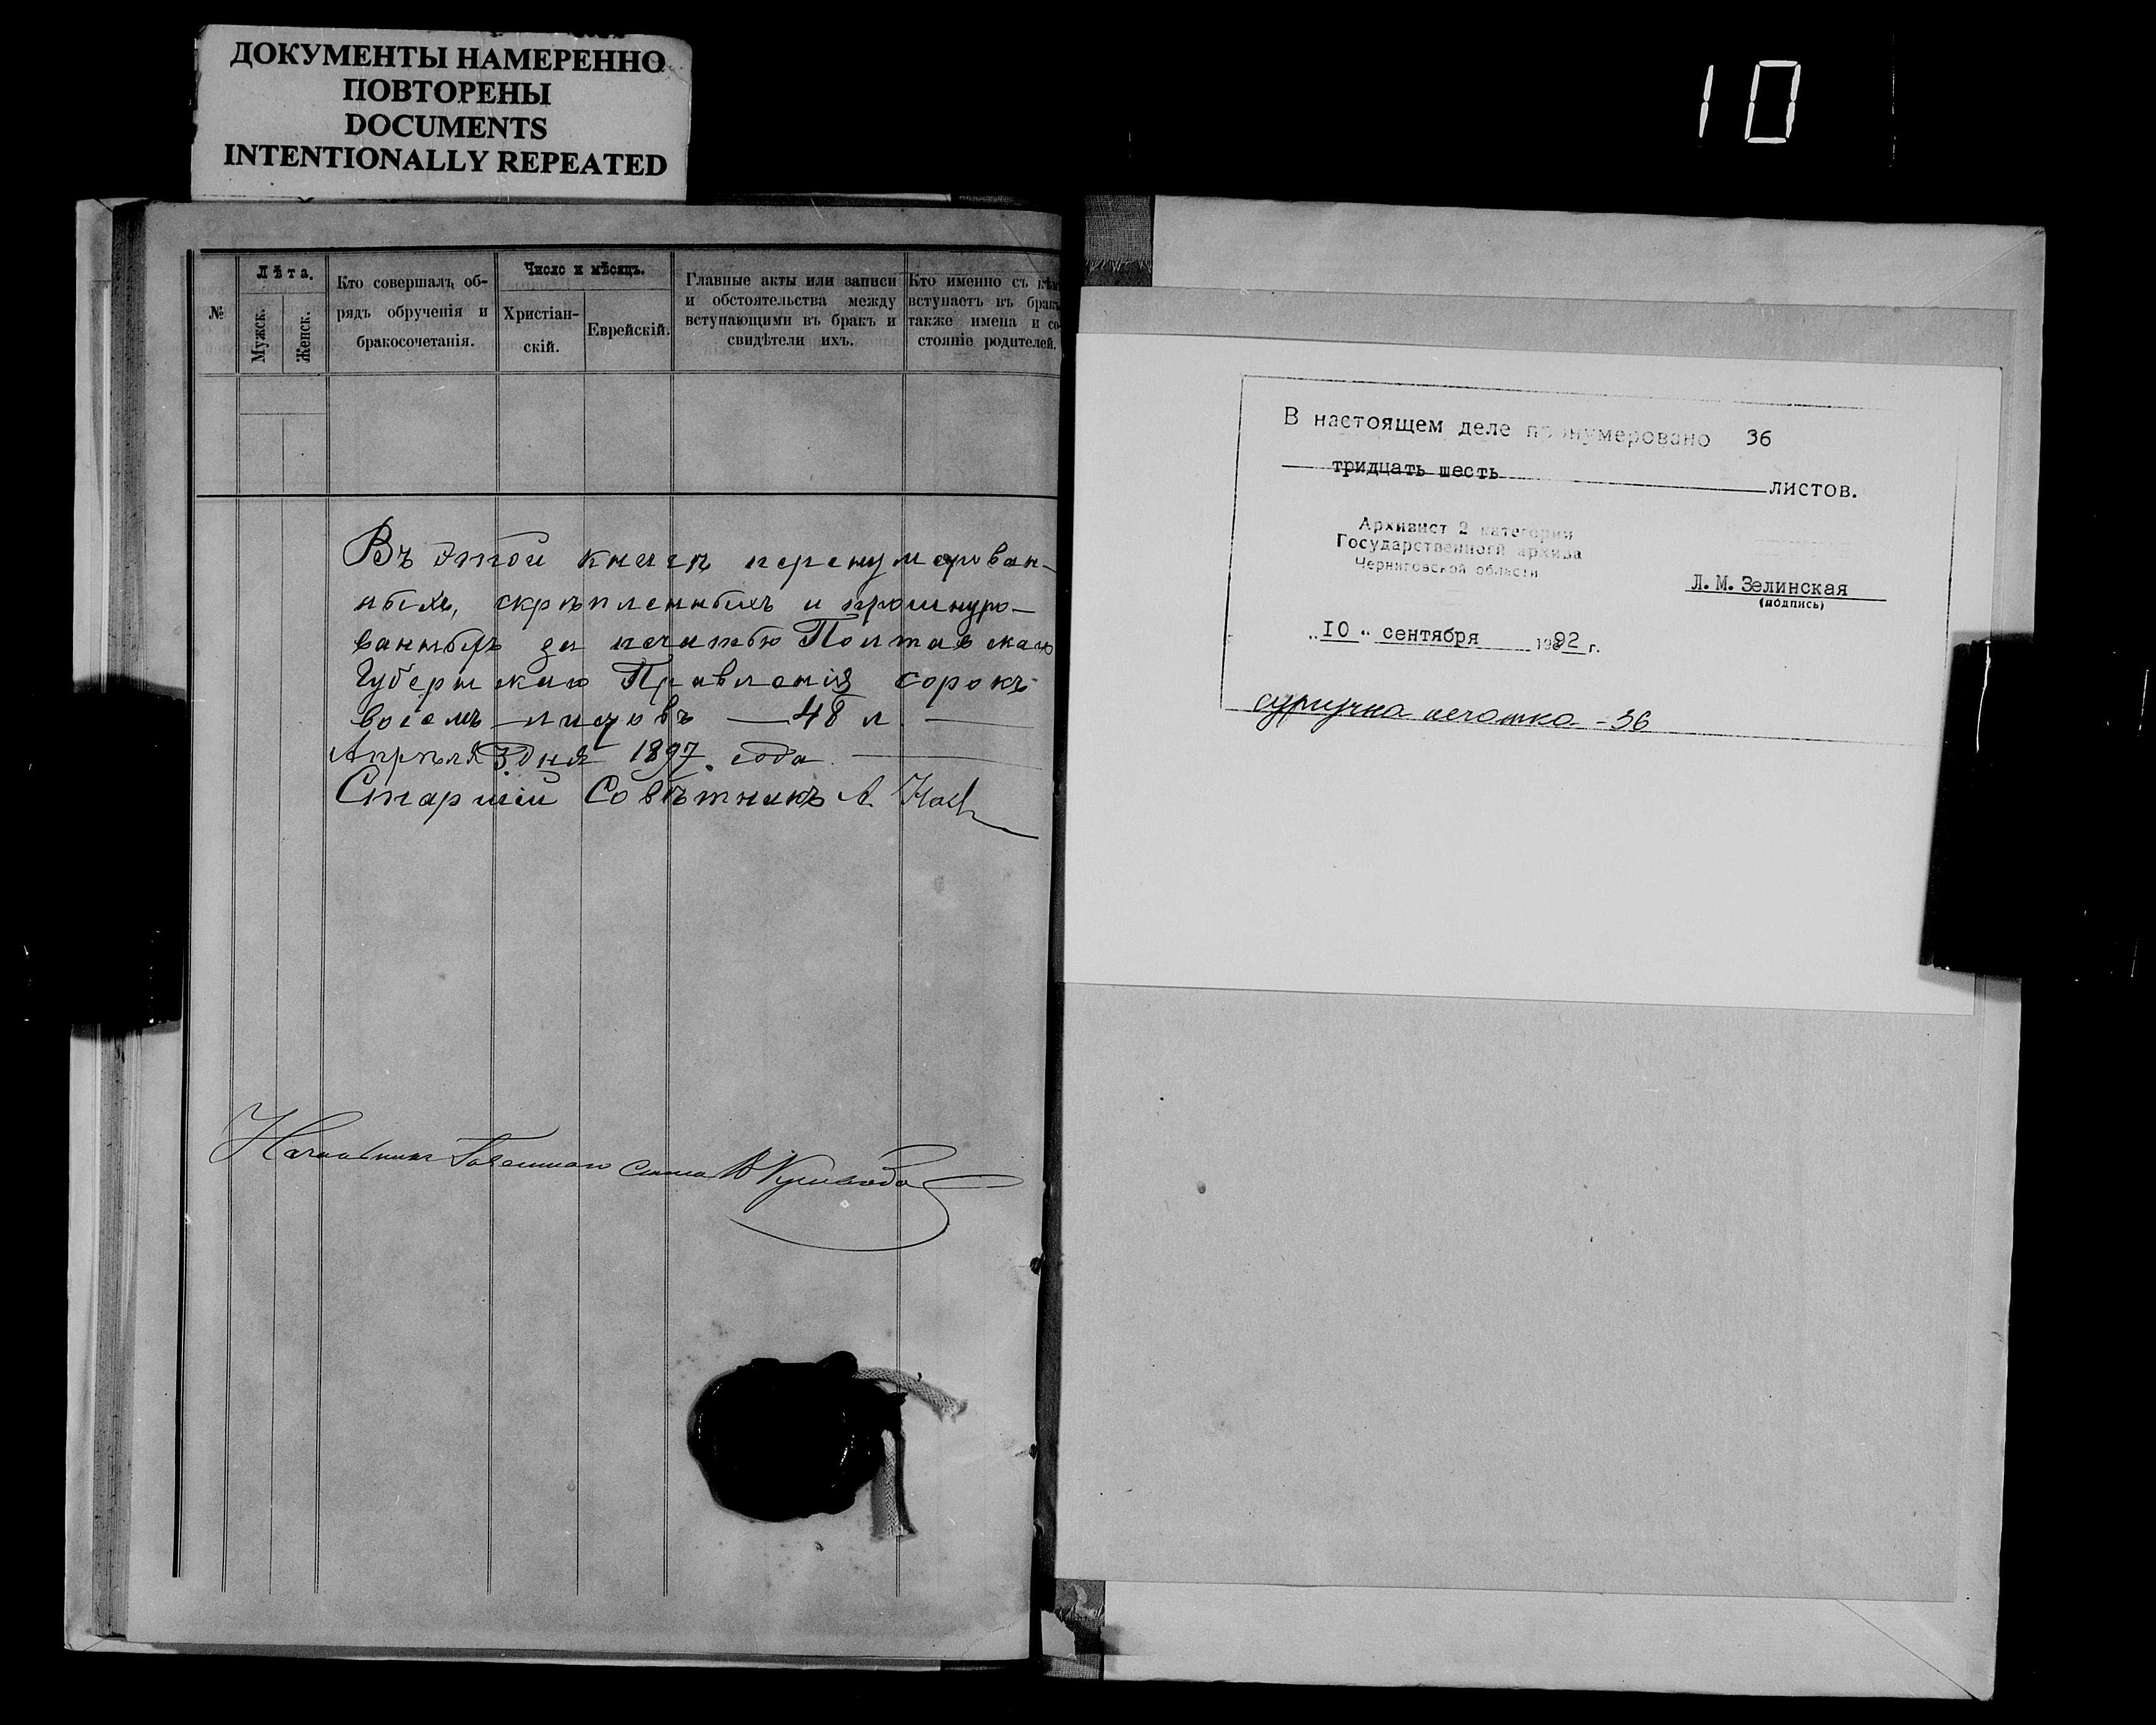 ДОКУМЕНТЫ НАМЕРЕННО
ПОВТОРЕНЫ
DOCUMENTS
INTENTIONALLY REPEATED
10
№
Лѣта.
Мужск.
Женск.
Кто совершалъ об-
рядъ обрученія и
бракосочетанія.
Число и мѣсяцъ.
Христіан-
скій.
Еврейскій.
Главные акты или записи
и обстоятельства между
вступающими въ бракъ и
свидѣтели ихъ.
Кто именно съ кѣм
вступаетъ въ брак
также имена и со-
стояніе родителей.
Въ этой книгѣ перенумерован-
ныхъ, скрѣпленныхъ и прошнуро-
ванныхъ за печатью Полтавскаго
Губернскаго Правленія сорокъ
восемь листовъ — 48 л.
Апрѣля 3 дня 1897 года.
Старшій Совѣтникъ А.
Начальникъ стола
В настоящем деле пронумеровано 36
тридцать шесть
листов.
Архивист 2 категории
Государственного архива
Черниговской области
Л.М.Зелинская
(подпись)
„10“ сентября 1992 г.
сургучна печатка - 36